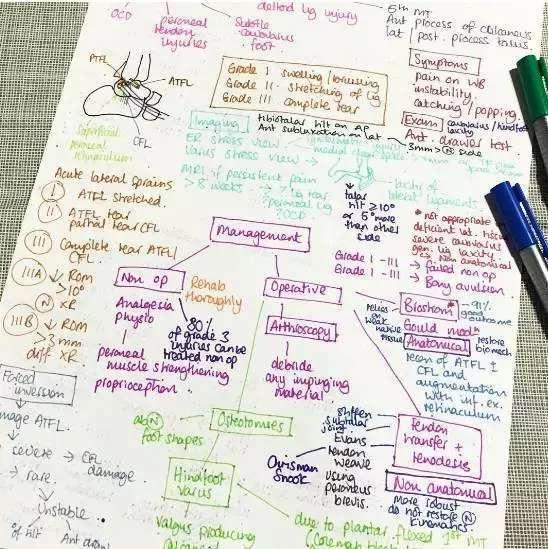 OCD
peroneal
tendon
injuries
deltoid lig injury
subtle
cavovarus
foot
5th MT
Ant process of calcaneus
lat / post. process talus.
PTFL
ATFL
CFL
Superficial
peroneal
retinaculum
Grade I swelling/bruising
Grade II - stretching of lig
Grade III complete tear
Symptoms
pain on WB
instability
catching/popping.
Exam cavovarus/hindfoot
laxity
Ant. drawer test.
3mm > N side
Imaging
tibiotalar tilt on AP
Ant subluxation on lat
ER stress view
Varus stress view
MRI if persistent pain
> 8 weeks
? peroneal lig
? OCD
talar
tilt ≥10°
or 5° more
than other
side
laxity of
lateral ligaments
* not appropriate
deficient lat.
severe cavovarus
gen. lig laxity.
↳ Non anatomical
Acute lateral sprains
I ATFL stretched.
II ATFL tear
partial tear CFL
III Complete tear ATFL/
CFL.
IIIA ↓ ROM
>10°
N XR
IIIB ↓ ROM
>3mm
diff XR
Management
Non op
Analgesia
physio
peroneal
muscle strengthening
proprioception
Rehab
thoroughly
80%
of grade 3
injuries can be
treated non op
Operative
Grade I - III → failed non op
Grade I - III → Bony avulsion
Arthroscopy
debride
any impinging
material
Brostrom*
~91%
good
outcome
Gould mod
Anatomical
restore
biomech
relies on
weak native
tissue
recon of ATFL ±
CFL and
augmentation
with inf. ex.
retinaculum
Forced
inversion
ATFL
severe → CFL
damage
→ rare.
Unstable
of tilt
abN
foot shapes
Osteotomies
Hindfoot
varus
Valgus producing
due to plantar flexed 1st MT
stiffen
subtalar
joint
Evans
tendon
weave
using
peroneus
brevis.
Chrisman
Snook
tendon
transfer +
tenodesis
Non anatomical
more robust
do not restore N
kinematics